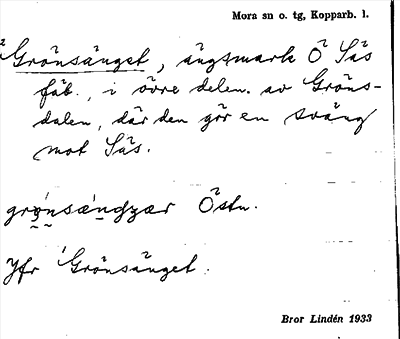 Mora sn o. tg, Kopparb. l.
Grönsänget, ängsmark Ö Säs
fäb., i övre delen av Gröns-
dalen, där den gör en sväng
mot Säs.
grǫ̈́nsæ̀ndʒær Östn.
Jfr Grönsänget.
Bror Lindén 1933